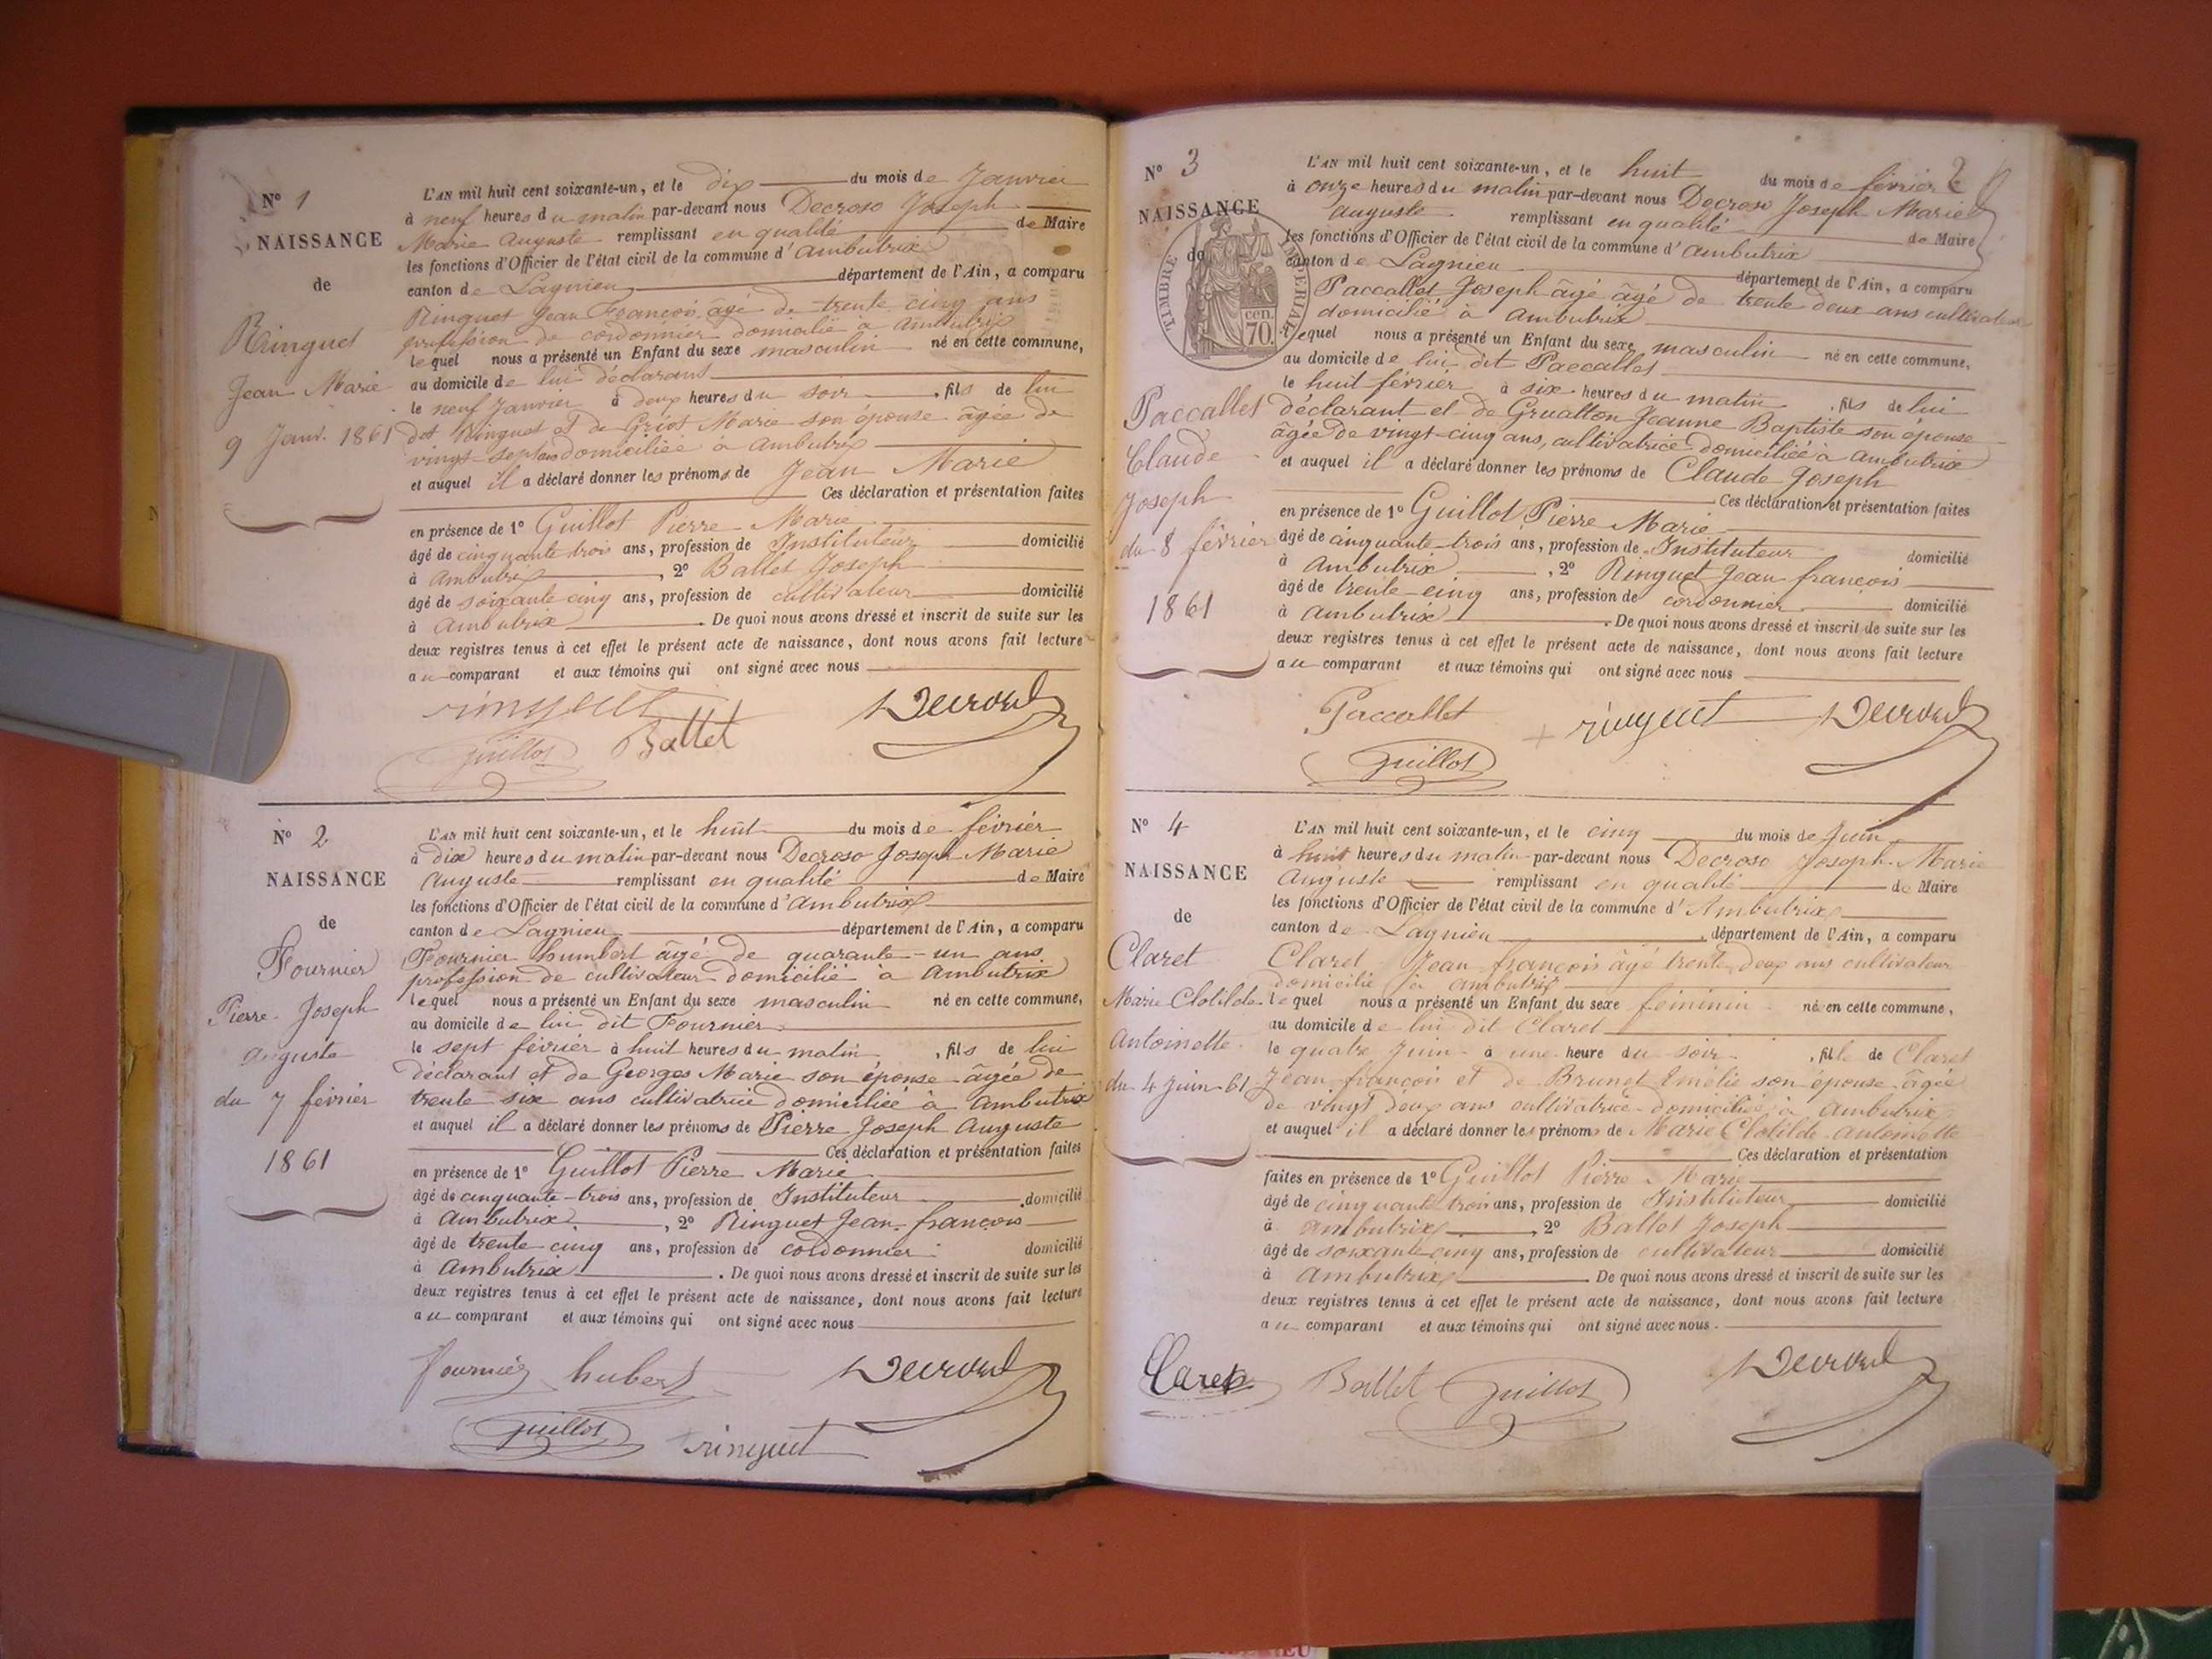 N° 1
NAISSANCE
de
Ringuet
Jean Marie
9 Janv. 1861
L'AN mil huit cent soixante-un, et le dix du mois de Janvier
à neuf heures du matin par-devant nous Decroso Joseph
Marie Auguste remplissant en qualité de Maire
les fonctions d'Officier de l'état civil de la commune d'Ambutrix
canton de Lagnieu département de l'Ain, a comparu
Ringuet Jean François âgé de trente cinq ans
profession de cordonnier domicilié à Ambutrix
lequel nous a présenté un Enfant du sexe masculin né en cette commune,
au domicile de lui déclarant
le neuf Janvier à deux heures du soir, fils de lui
dit Ringuet et de Griot Marie son épouse âgée de
vingt-sept ans domiciliée à Ambutrix
et auquel il a déclaré donner les prénoms de Jean Marie
Ces déclaration et présentation faites
en présence de 1° Guillot Pierre Marie
âgé de cinquante trois ans, profession de Instituteur domicilié
à Ambutrix, 2° Ballet Joseph
âgé de soixante cinq ans, profession de cultivateur domicilié
à Ambutrix. De quoi nous avons dressé et inscrit de suite sur les
deux registres tenus à cet effet le présent acte de naissance, dont nous avons fait lecture
au comparant et aux témoins qui ont signé avec nous
ringuet
Guillot Ballet
N° 2
NAISSANCE
de
Fournier
Pierre Joseph
Auguste
du 7 février
1861
L'AN mil huit cent soixante-un, et le huit du mois de février
à dix heures du matin par-devant nous Decroso Joseph Marie
Auguste remplissant en qualité de Maire
les fonctions d'Officier de l'état civil de la commune d'Ambutrix
canton de Lagnieu département de l'Ain, a comparu
Fournier humbert âgé de quarante-un ans
profession de cultivateur domicilié à Ambutrix
lequel nous a présenté un Enfant du sexe masculin né en cette commune,
au domicile de lui dit Fournier
le sept février à huit heures du matin, fils de lui
déclarant et de Georges Marie son épouse âgée de
trente six ans cultivatrice domiciliée à Ambutrix
et auquel il a déclaré donner les prénoms de Pierre Joseph Auguste
Ces déclaration et présentation faites
en présence de 1° Guillot Pierre Marie
âgé de cinquante-trois ans, profession de Instituteur domicilié
à Ambutrix, 2° Ringuet Jean françois
âgé de trente cinq ans, profession de cordonnier domicilié
à Ambutrix. De quoi nous avons dressé et inscrit de suite sur les
deux registres tenus à cet effet le présent acte de naissance, dont nous avons fait lecture
au comparant et aux témoins qui ont signé avec nous
fournier hubert
Guillot ringuet
N° 3
NAISSANCE
de
TIMBRE IMPERIAL
70 cen.
Paccallet
Claude
Joseph
du 8 février
1861
L'AN mil huit cent soixante-un, et le huit du mois de février 2
à onze heures du matin par-devant nous Decroso Joseph Marie
Auguste remplissant en qualité de Maire
les fonctions d'Officier de l'état civil de la commune d'Ambutrix
canton de Lagnieu département de l'Ain, a comparu
Paccallet Joseph âgé âgé de trente deux ans cultivateur
domicilié à Ambutrix
lequel nous a présenté un Enfant du sexe masculin né en cette commune,
au domicile de lui dit Paccallet
le huit février à six heures du matin, fils de lui
déclarant et de Gruatton Jeanne Baptiste son épouse
âgée de vingt-cinq ans, cultivatrice domiciliée à Ambutrix
et auquel il a déclaré donner les prénoms de Claude Joseph
Ces déclaration et présentation faites
en présence de 1° Guillot Pierre Marie
âgé de cinquante-trois ans, profession de Instituteur domicilié
à Ambutrix, 2° Ringuet Jean françois
âgé de trente-cinq ans, profession de cordonnier domicilié
à Ambutrix. De quoi nous avons dressé et inscrit de suite sur les
deux registres tenus à cet effet le présent acte de naissance, dont nous avons fait lecture
au comparant et aux témoins qui ont signé avec nous
Paccallet ringuet
Guillot
N° 4
NAISSANCE
de
Claret
Marie Clotilde
Antoinette
du 4 juin 61
L'AN mil huit cent soixante-un, et le cinq du mois de Juin
à huit heures du matin par-devant nous Decroso Joseph Marie
Auguste remplissant en qualité de Maire
les fonctions d'Officier de l'état civil de la commune d'Ambutrix
canton de Lagnieu, département de l'Ain, a comparu
Claret Jean françois âgé trente deux ans cultivateur
domicilié à Ambutrix
lequel nous a présenté un Enfant du sexe féminin né en cette commune,
au domicile de lui dit Claret
le quatre Juin à une heure du soir, fille de Claret
Jean françois et de Brunet Emélie son épouse âgée
de vingt deux ans cultivatrice domiciliée à Ambutrix
et auquel il a déclaré donner les prénoms de Marie Clotilde Antoinette
Ces déclaration et présentation
faites en présence de 1° Guillot Pierre Marie
âgé de cinquante trois ans, profession de Instituteur domicilié
à Ambutrix, 2° Ballet Joseph
âgé de soixante cinq ans, profession de cultivateur domicilié
à Ambutrix. De quoi nous avons dressé et inscrit de suite sur les
deux registres tenus à cet effet le présent acte de naissance, dont nous avons fait lecture
au comparant et aux témoins qui ont signé avec nous.
Claret Ballet Guillot